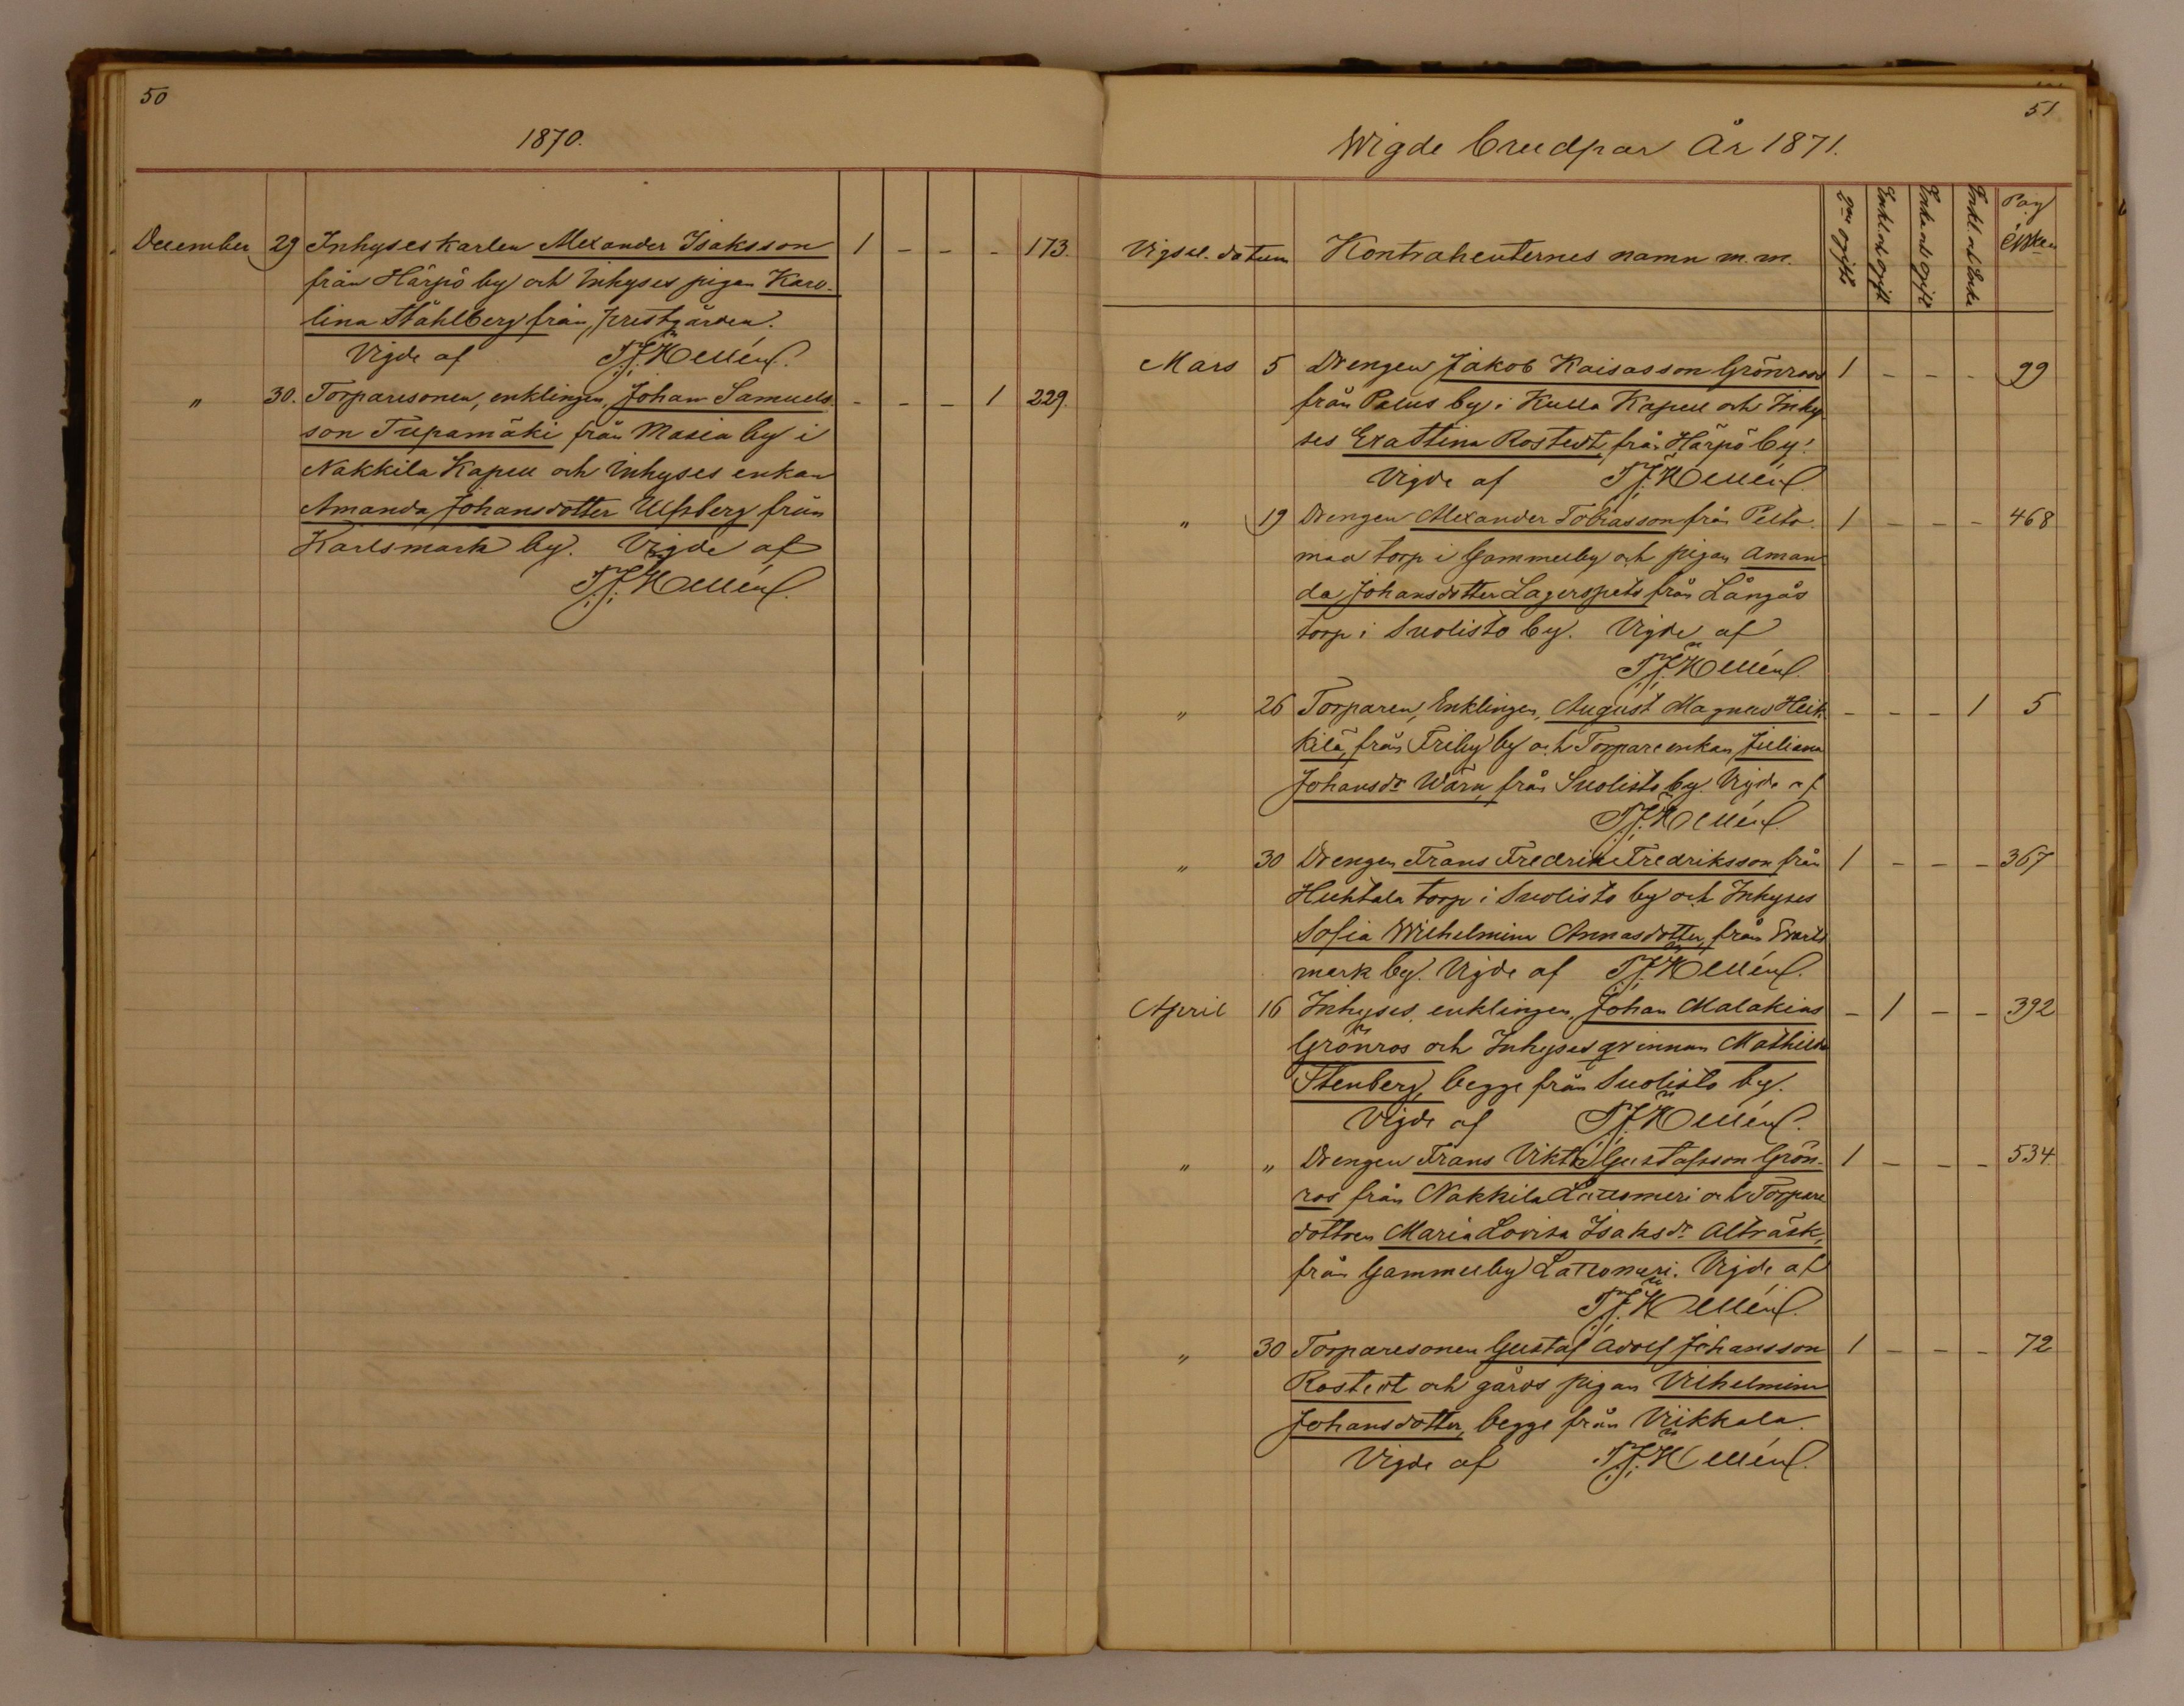 50
1870.
December 29 Inhyseskarlen Alexander Isaksson 1 - - - 173.
från Härpö by och Inhyses pigan Karo-
lina Ståhlberg från prestgården.
Vigde af
" 30. Torparesonen, enklingen, Johan Samuels- - - - 1 229.
son Tupamäki från Masia by i
Nakkila Kapell och Inhyses enkan
Amanda Johansdotter Ulfsberg från
Karlsmark by. Vigde af
51
Wigde brudpar År 1871.
Vigsel. datum Kontrahenternes namn m. m. ogifte Enkl. och ogift Enka och ogift Enkl. och Enka Pag
Mars 5 Drengen Jakob Kaisasson Grönroos 1 - - - 99
från Palus by i Kulla Kapell och Inhy-
ses Eva Stina Rostedt, från Härpö by.
Vigde af
" 19 Drengen Alexander Tobiasson från Pelto- 1 - - - 468
maa torp i Gammelby och pigan Aman-
da Johansdotter Lagerspets från Långås
torp i Suolisto by. Vigde af
" 26 Torparen, Enklingen, August Magnus Heik- - - - 1 5
kilä, från Friby by och Torpare enkan Juliana
Johansdr Wärn, från Suolisto by. Vigde af
" 30 Drengen Frans Fredrik Fredriksson från 1 - - - 367
Huhtala torp i Suolisto by och Inhyses
Sofia Wilhelmina Annasdotter, från
mark by. Vigde af
April 16 Inhyses, enklingen, Johan Malakias - 1 - - 392
Grönros och Inhyses qvinnan Mathilda
Stenberg, begge från Suolisto by.
Vigde af
" " Drengen Frans Viktor Gustafsson Grön- 1 - - - 534.
ros från Nakkila Lattomeri och Torpare
dottren Maria Lovisa Isaksdr Alträsk,
från Gammelby Lattomeri. Vigde af
" 30 Torparesonen Gustaf Adolf Johansson 1 - - - 72
Rostedt och gårds pigan Vilhelmina
Johansdotter, begge från Viikkala.
Vigde af